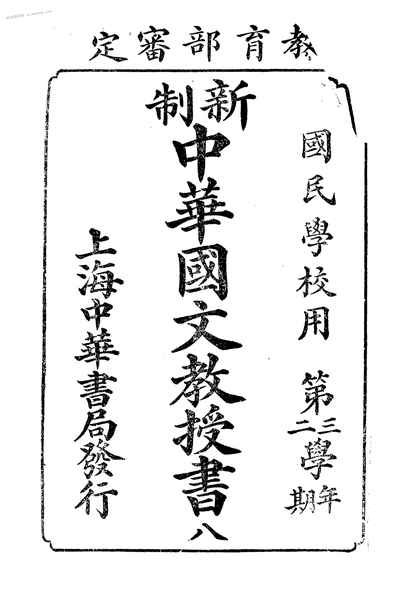 教育部審定
國民學校用 第三學年二學期
新制
中華國文教授書八
上海中華書局發行